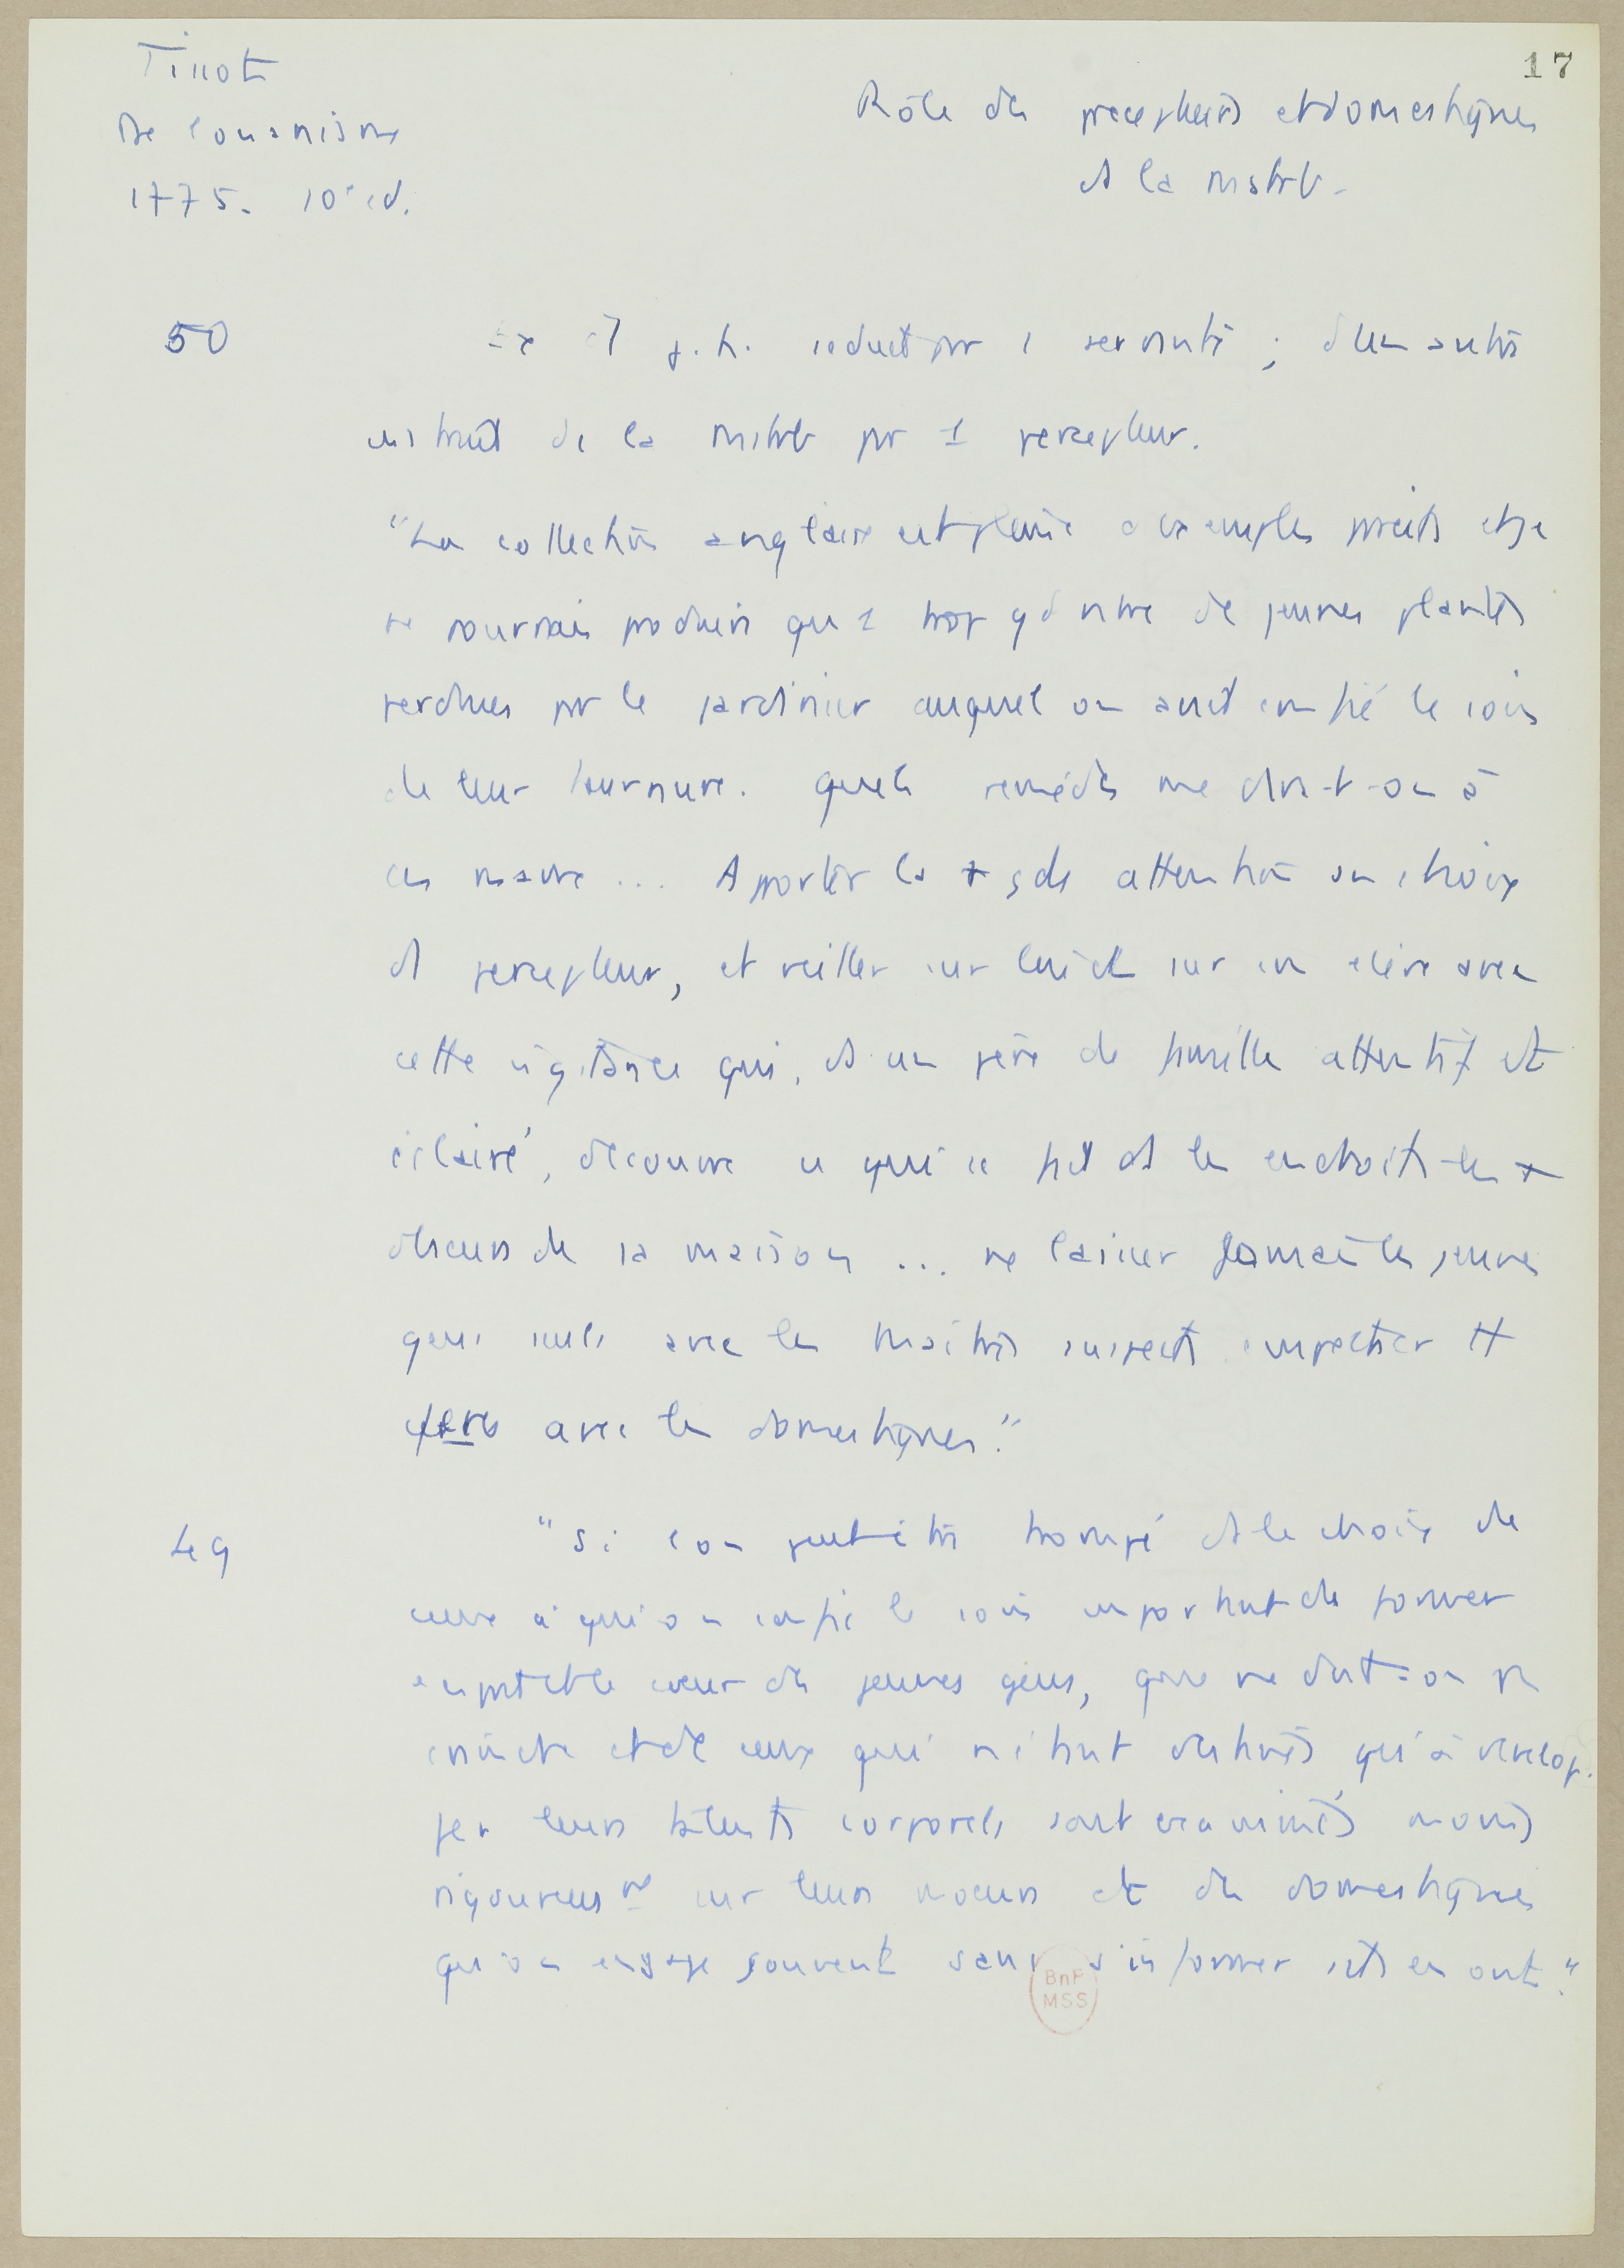 17
Tissot
De l'onanisme
1775. 10e ed.
Rôle des precepteurs et domestiques
ds la mastrb.
50
Ex d'1 j.h. seduct par 1 servante ; d'un autre
instruit de la mastrb par 1 precepteur.
"La collection anglaise est pleine d'exemples pareils et je
ne pourrais produire qu'1 trop gd nbre de jeunes plantes
perdues par le jardinier auquel on avait confié le soin
de leur tournure. Quels remèdes me dira-t-on à
ces maux ... Apporter la + gde attention au choix
d'1 precepteur, et veiller sur lui et sur son élève avec
cette vigilance qui, ds un père de famille attentif et
éclairé, découvre ce qui se fait ds les endroits les +
obscurs de sa maison ... ne laisser jamais les jeunes
gens seuls avec les maîtres suspects empecher tt
avec les domestiques."
49
"Si l'on peut être trompé ds le choix de
ceux à qui on confie le soin important de former
esprit et le coeur des jeunes gens, que ne doit-on pas
craindre et de ceux qui n'étant destinés qu'à develop-
per leurs talents corporels sont examinés moins
rigoureusmt sur leurs moeurs et des domestiques
qu'on engage souvent sans s'informer s'ils en ont."
BnF
MSS